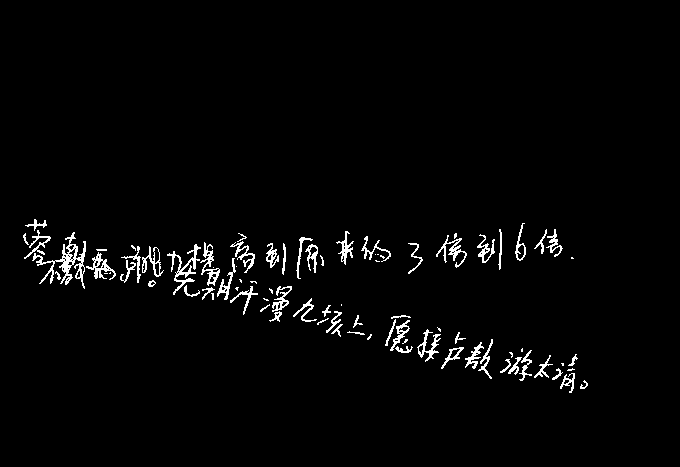 提高到原来的3倍到6倍.
先期汗漫九垓上,愿接卢敖游太清。